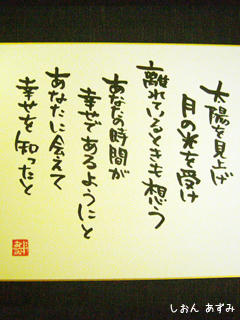 太陽を見上げ
月の光を受け
離れているときも想う
あなたの時間が
幸せであるようにと
あなたに会えて
幸せを知ったと
しおん あずみ